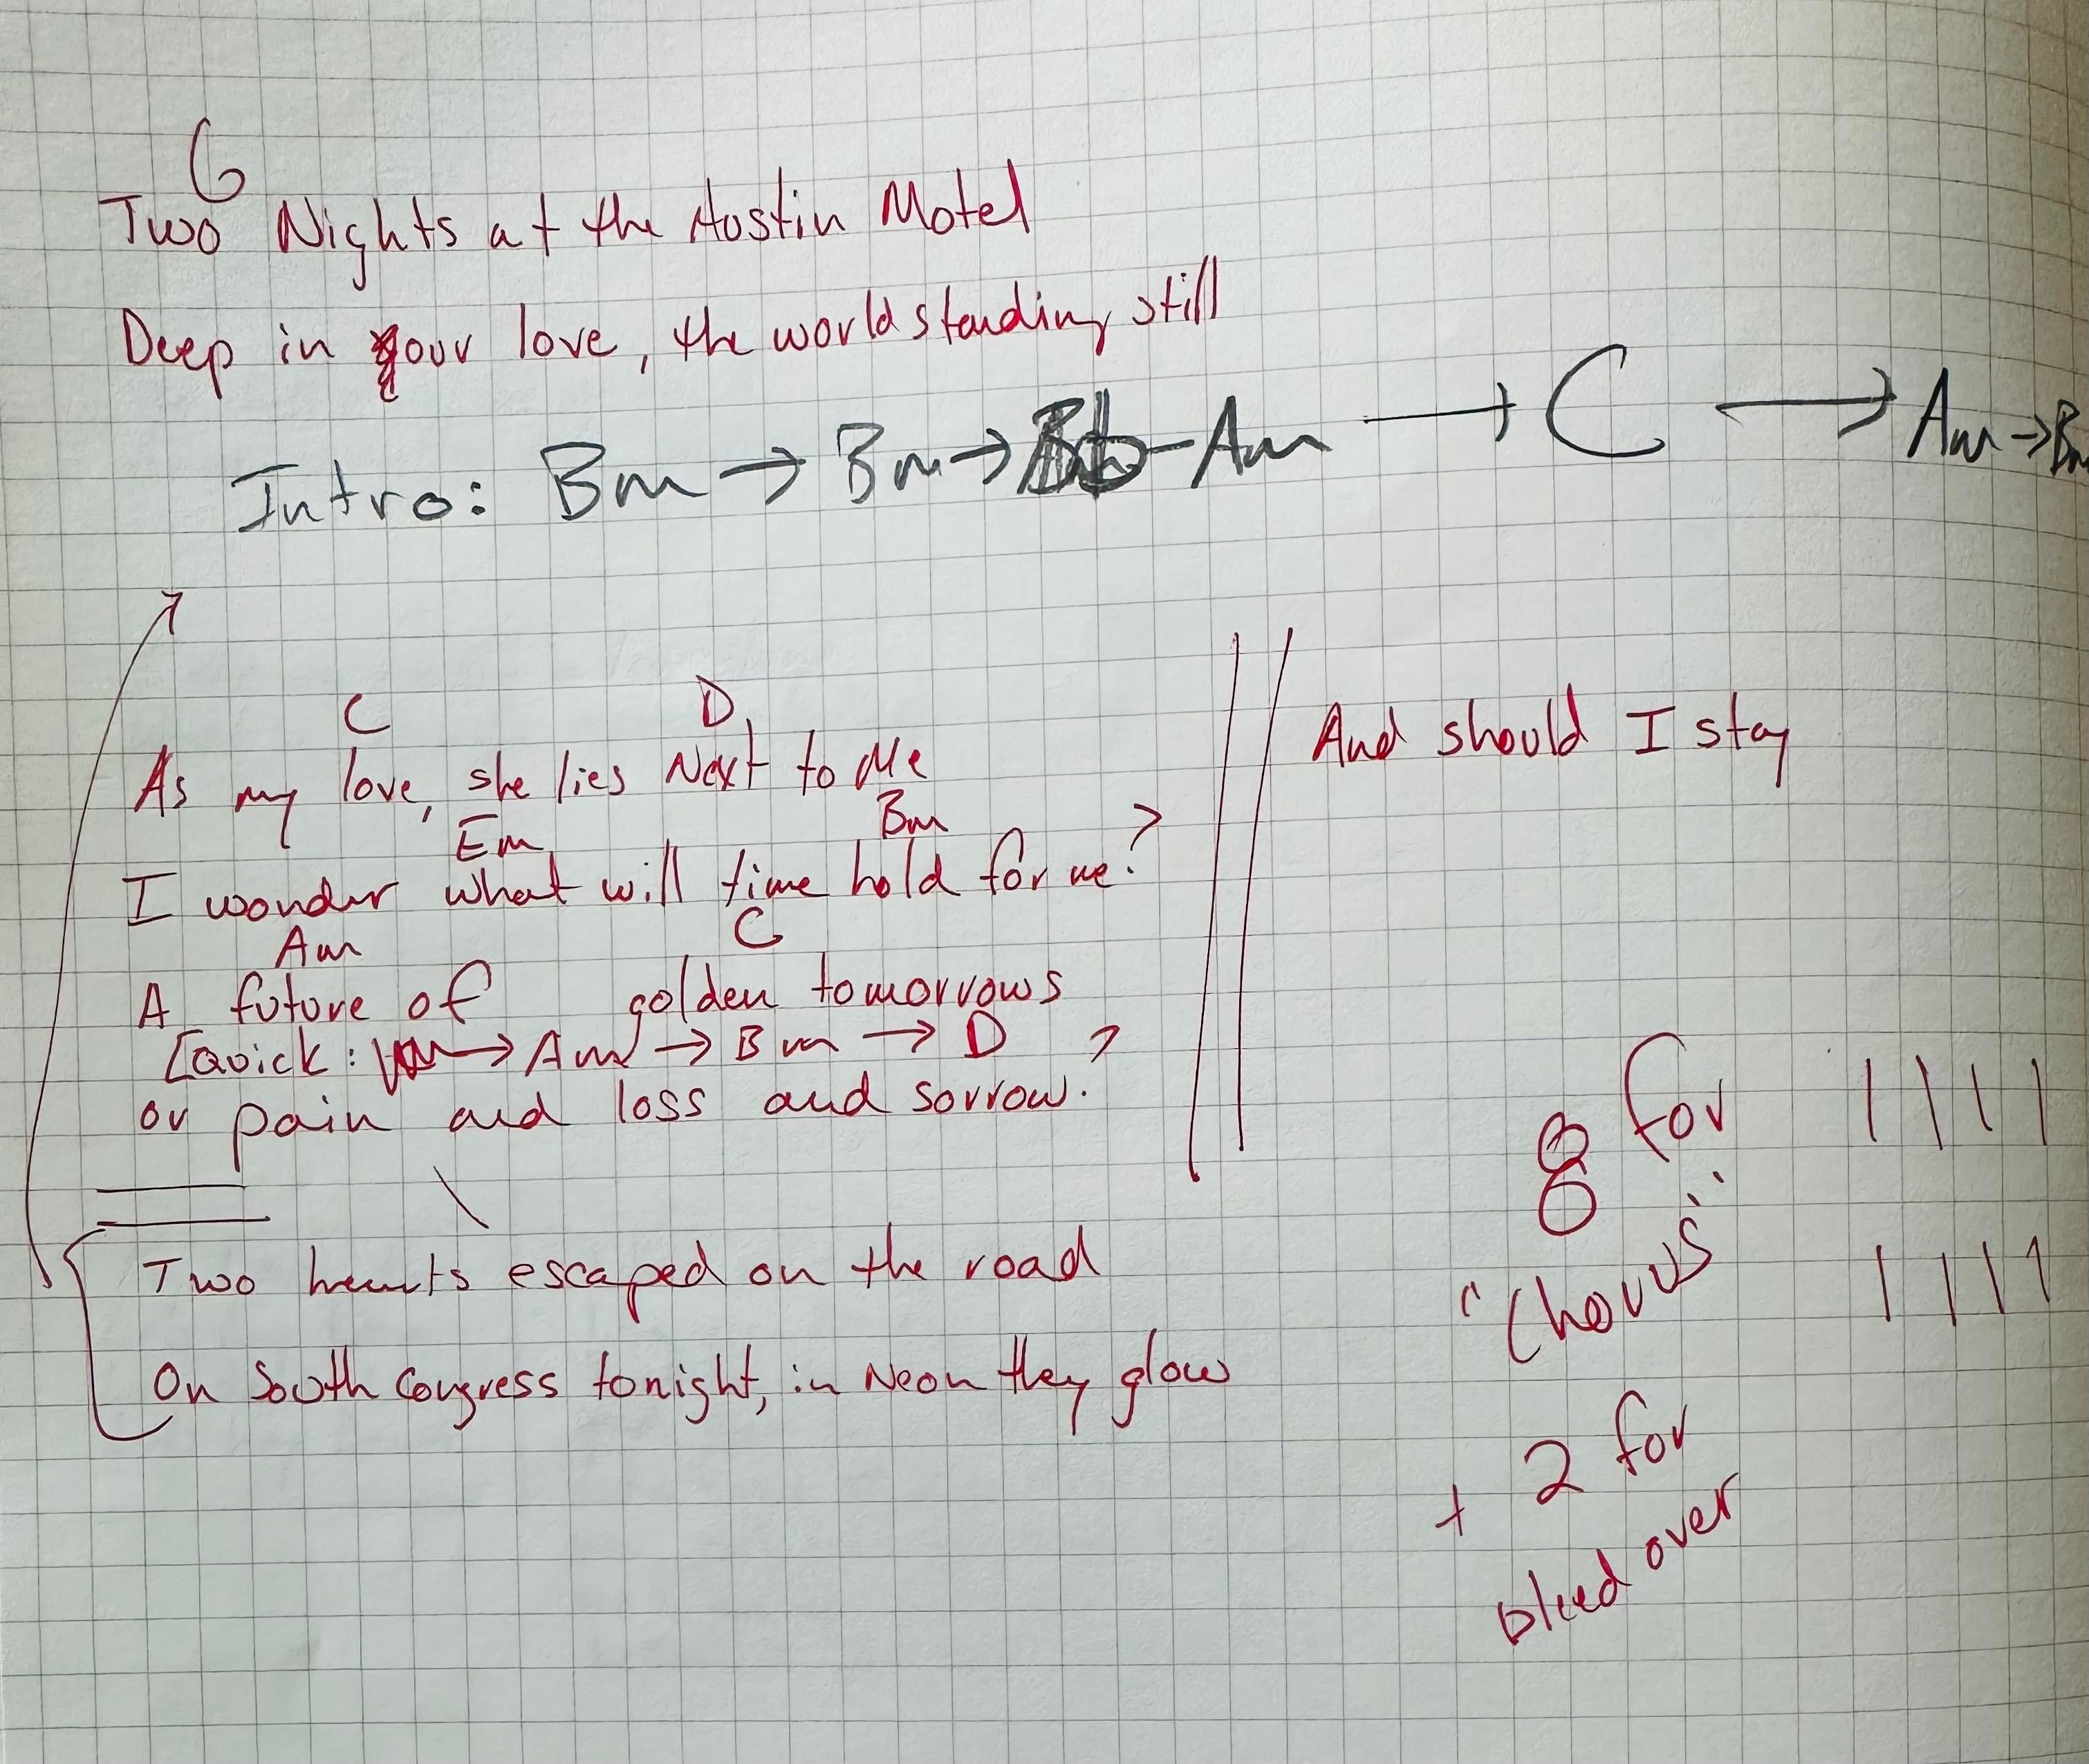 G
Two Nights at the Austin Motel
Deep in your love, the world standing still
Intro: Bm → Bm → Bb - Am → C → Am → Bm
C D
As my love, she lies Next to Me
Em Bm
I wonder what will time hold for me?
Am C
A future of golden tomorrows
[Quick: → Am → Bm → D
or pain and loss and sorrow?
Two hearts escaped on the road
On South Congress tonight, in Neon they glow
And should I stay
8 for | | | |
"Chorus" | | | |
+ 2 for
bleed over